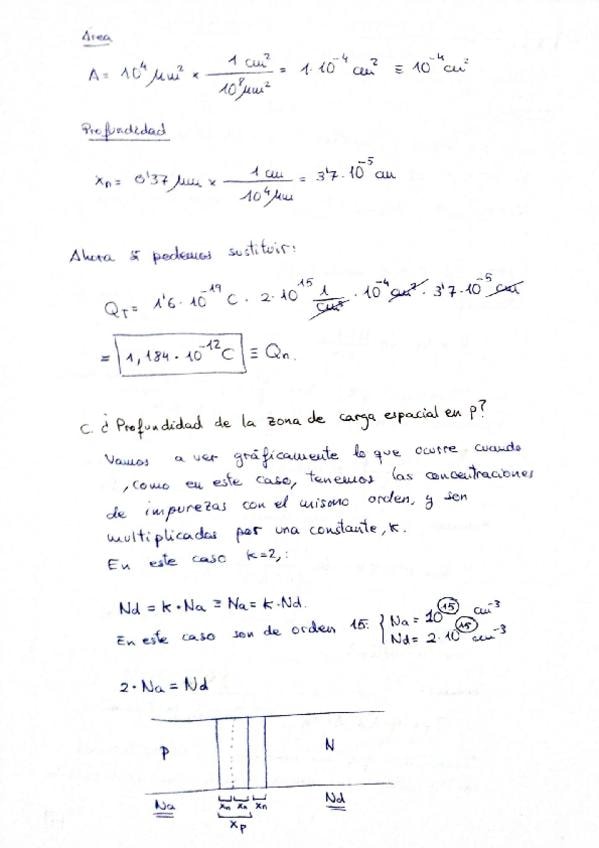 Área
A = 10⁴ μm² × 1 cm² / 10⁸ μm² = 1·10⁻⁴ cm² ≡ 10⁻⁴ cm²
Profundidad
xn = 0'37 μm × 1 cm / 10⁴ μm = 3'7·10⁻⁵ cm
Ahora sí podemos sustituir:
QT = 1'6·10⁻¹⁹ C · 2·10¹⁵ 1/cm³ · 10⁻⁴ cm² · 3'7·10⁻⁵ cm
= 1,184·10⁻¹² C ≡ Qn.
C. ¿Profundidad de la zona de carga espacial en p?
Vamos a ver gráficamente lo que ocurre cuando
, como en este caso, tenemos las concentraciones
de impurezas con el mismo orden, y son
multiplicadas por una constante, k.
En este caso k=2,:
Nd = k·Na ≡ Na = k·Nd.
En este caso son de orden 15: { Na = 10¹⁵ cm⁻³
Nd = 2·10¹⁵ cm⁻³
2·Na = Nd
P N
xn xn xn
Na xp Nd